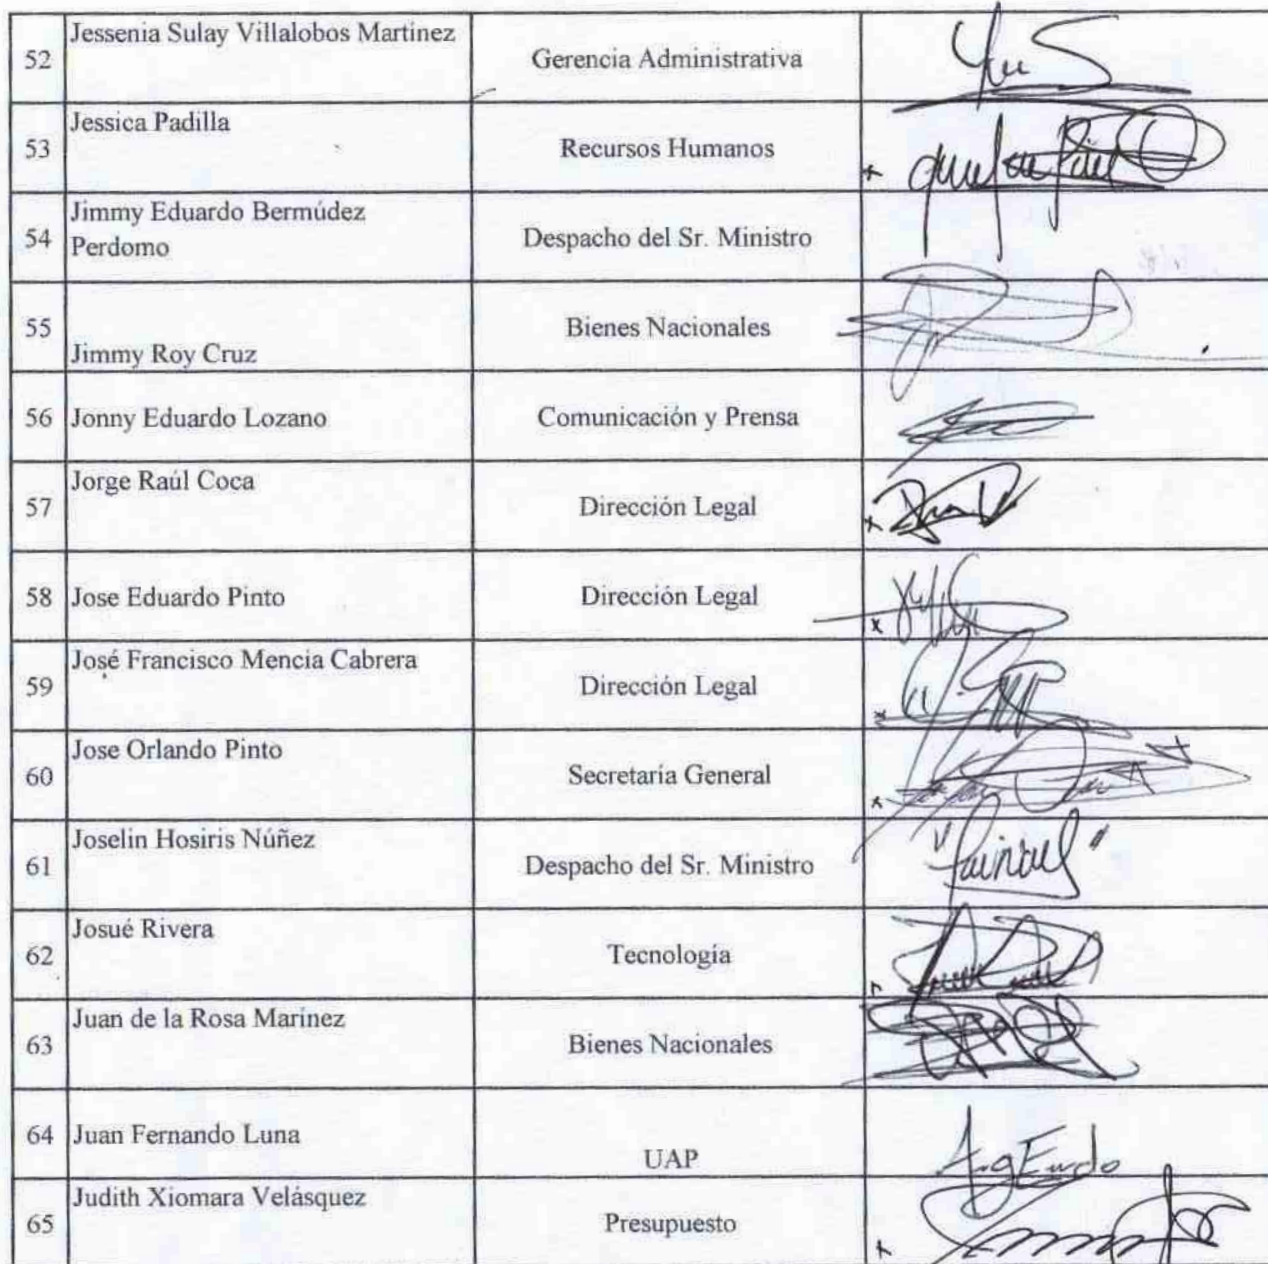 52 Jessenia Sulay Villalobos Martínez Gerencia Administrativa
53 Jessica Padilla Recursos Humanos
54 Jimmy Eduardo Bermúdez
Perdomo Despacho del Sr. Ministro
55 Jimmy Roy Cruz Bienes Nacionales
56 Jonny Eduardo Lozano Comunicación y Prensa
57 Jorge Raúl Coca Dirección Legal
58 Jose Eduardo Pinto Dirección Legal
59 José Francisco Mencia Cabrera Dirección Legal
60 Jose Orlando Pinto Secretaría General
61 Joselin Hosiris Núñez Despacho del Sr. Ministro
62 Josué Rivera Tecnología
63 Juan de la Rosa Marínez Bienes Nacionales
64 Juan Fernando Luna UAP
65 Judith Xiomara Velásquez Presupuesto